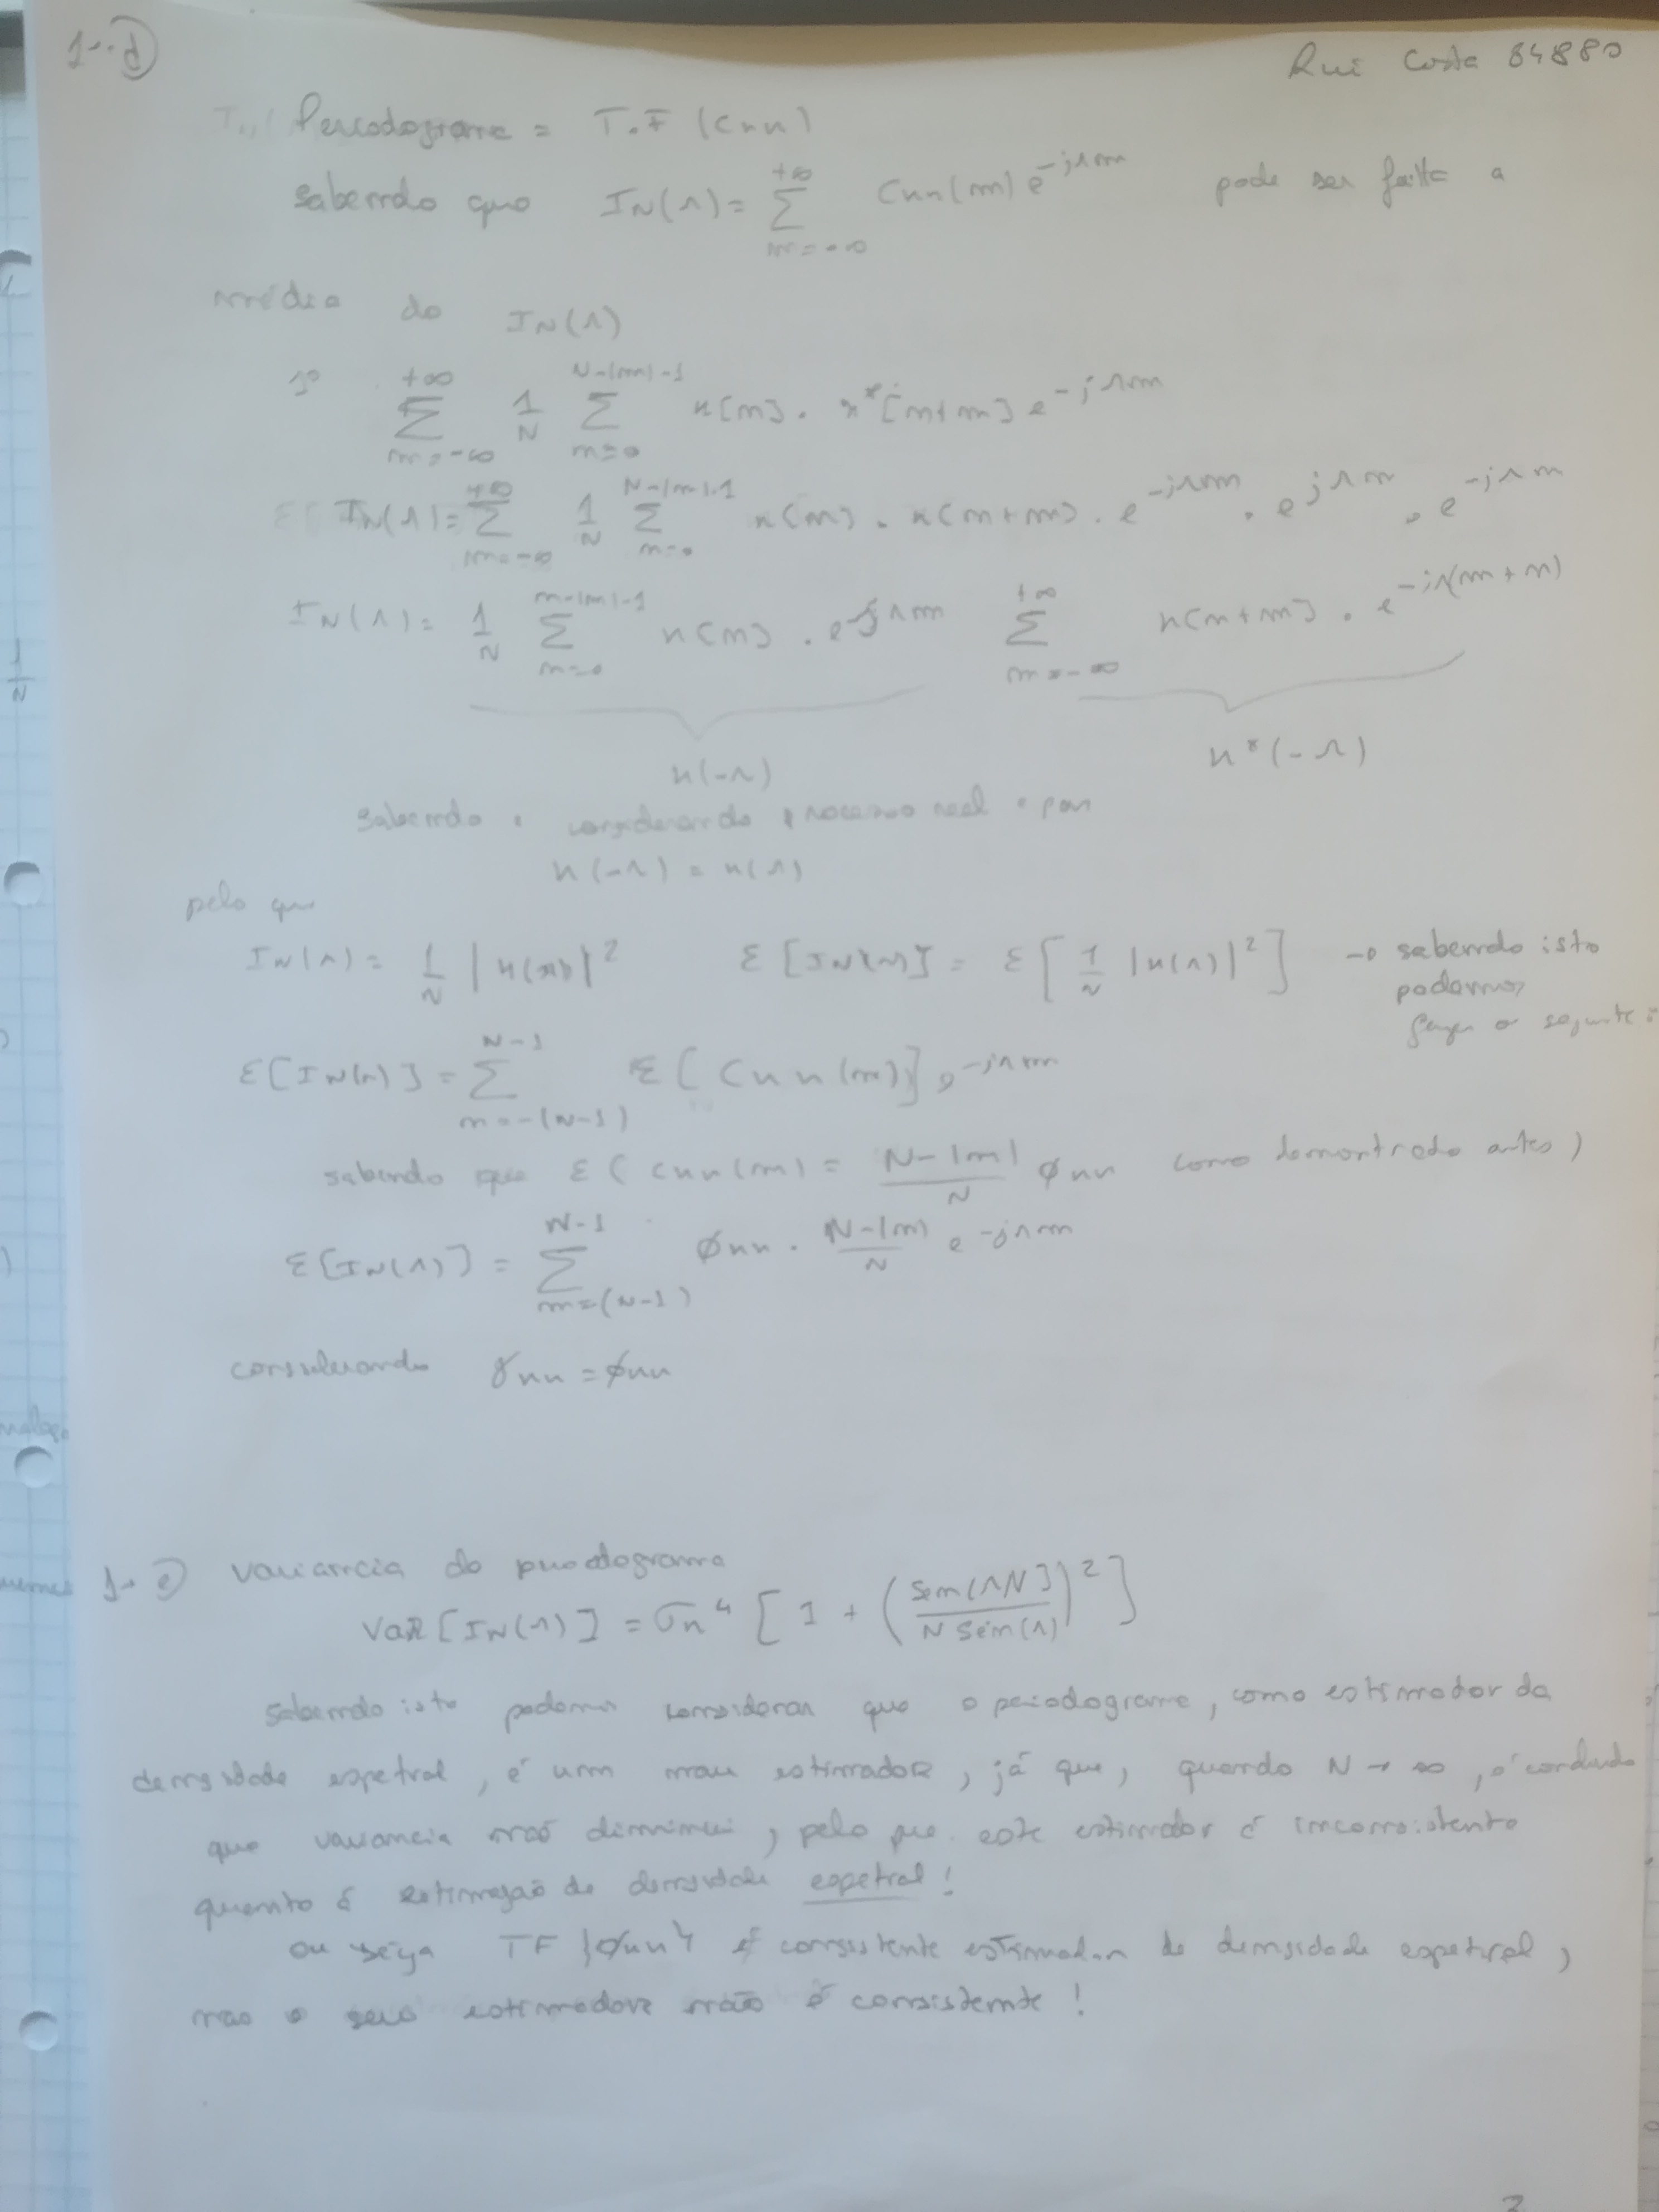 1-d) Rui Costa 84880
Periodograma = T.F (Cxx)
sabendo que IN(Λ) = Σ_{m=-∞}^{+∞} Cxx(m) e^{-jΛm} pode ser feita a
média do IN(Λ)
1º Σ_{m=-∞}^{+∞} 1/N Σ_{n=0}^{N-|m|-1} x[n] . x*[n+m] e^{-jΛm}
IN(Λ) = Σ_{m=-∞}^{+∞} 1/N Σ_{n=0}^{N-|m|-1} x(n) . x(n+m) . e^{-jΛm} . e^{jΛn} . e^{-jΛn}
IN(Λ) = 1/N Σ_{n=0}^{n-|m|-1} x[n] . e^{jΛn} Σ_{m=-∞}^{+∞} x[n+m] . e^{-jΛ(m+n)}
x(-Λ) x*(-Λ)
sabendo considerando processo real e par
x(-Λ) = x(Λ)
pelo que
IN(Λ) = 1/N |x(Λ)|² E[IN(Λ)] = E[1/N |x(Λ)|²] → sabendo isto
podemos
fazer o seguinte:
E[IN(Λ)] = Σ_{m=-(N-1)}^{N-1} E[Cxx(m)] e^{-jΛm}
sabendo que E(Cxx(m) = (N-|m|)/N ϕxx como demontrado antes)
E[IN(Λ)] = Σ_{m=(N-1)}^{N-1} ϕxx . (N-|m|)/N e^{-jΛm}
considerando γxx = ϕxx
1-e) Variancia do periodograma
VAR[IN(Λ)] = σx⁴ [1 + (sen(ΛN)/(N sen(Λ)))²]
sabendo isto podemos considerar que o periodograma, como estimador da
densidade espetral, é um mau estimador, já que, quando N → ∞,
que variancia não diminui, pelo que este estimador é inconsistente
quanto á estimação de densidade espetral!
ou seja TF {ϕxx} é consistente estimador de densidade espetral,
mas o seu estimador não é consistente!